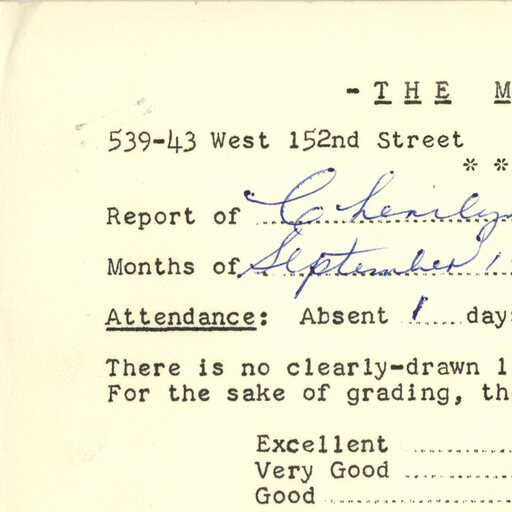 - THE M
539-43 West 152nd Street
* *
Report of Cherilyn
Months of September 1
Attendance: Absent 1 days
There is no clearly-drawn l
For the sake of grading, the
Excellent
Very Good
Good